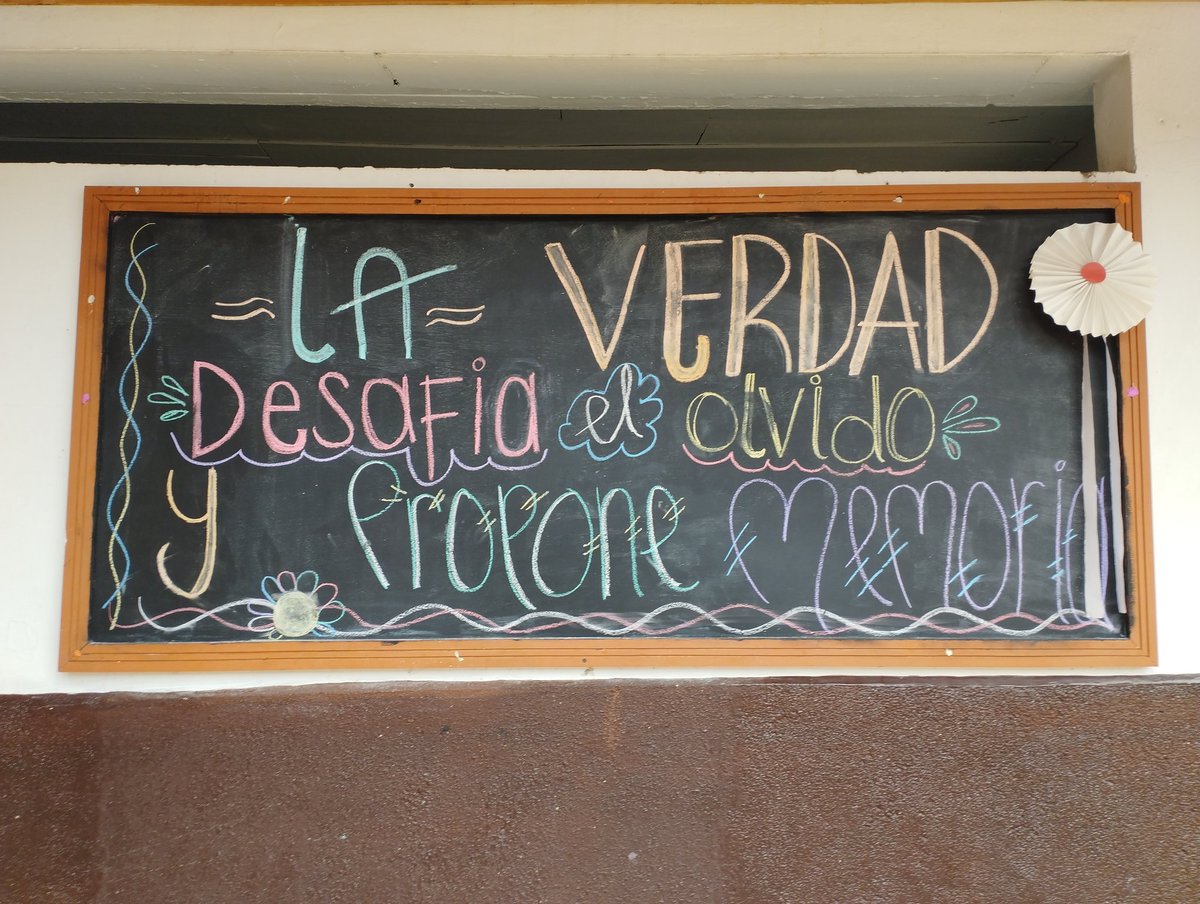 LA VERDAD
Desafia el olvido
y Propone Memoria